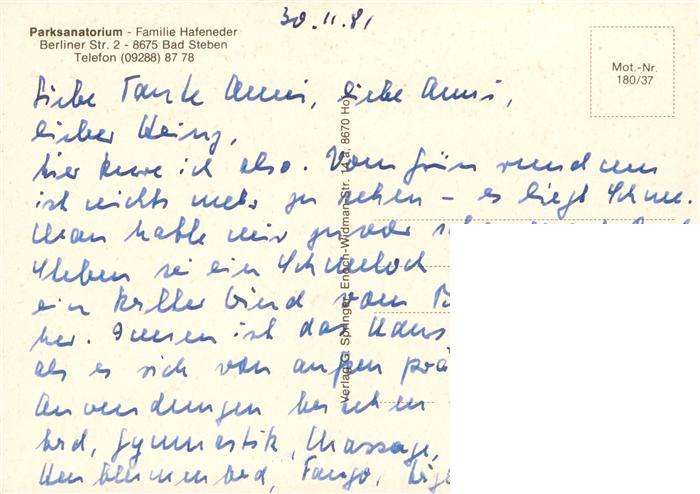 30.11.81
Parksanatorium - Familie Hafeneder
Berliner Str. 2 - 8675 Bad Steben
Telefon (09288) 87 78
Mot.-Nr.
180/37
Liebe Tante Anni, liebe Anni,
lieber Heinz,
hier kure ich also. Vom Grün rundum
ist nichts mehr zu sehen – es liegt Schnee.
Man hatte mir zuvor
Steben sei ein Schneeloch
ein kalter Wind vom
her. Innen ist das Haus
als es sich von außen
Anwendungen bestehen
bad, Gymnastik, Massage,
Fango,
Verlag G. Springer, Enoch-Widman-Str. 14 a, 8670 Hof